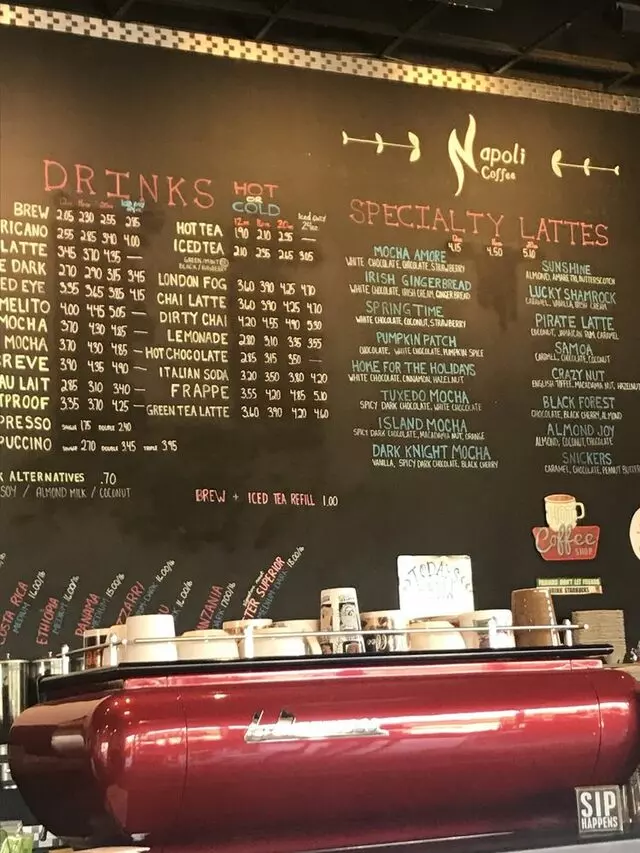 Napoli
Coffee
DRINKS
BREW 2.05 2.30 2.55
RICANO 2.55 2.85 3.40 4.00
LATTE 3.45 3.70 4.35 —
E DARK 2.70 2.90 3.15 3.45
ED EYE 3.35 3.65 3.85 4.15
MELITO 4.00 4.45 5.05 —
MOCHA 3.70 4.30 4.85 —
MOCHA 3.70 4.30 4.85 —
REVE 3.90 4.35 4.90 —
AU LAIT 2.85 3.10 3.40 —
TPROOF 3.35 3.70 4.25 —
PRESSO SINGLE 1.75 DOUBLE 2.40
PUCCINO SINGLE 2.70 DOUBLE 3.45 TRIPLE 3.95
K ALTERNATIVES .70
SOY / ALMOND MILK / COCONUT
HOT
OR
COLD
12oz 16oz 20oz Iced only 24oz
HOT TEA 1.90 2.10 2.35 —
ICED TEA 2.10 2.35 2.65 3.05
LONDON FOG 3.60 3.90 4.25 4.70
CHAI LATTE 3.60 3.90 4.25 4.70
DIRTY CHAI 4.20 4.55 4.90 5.30
LEMONADE 2.80 3.10 3.35 3.55
HOT CHOCOLATE 2.85 3.15 3.50 —
ITALIAN SODA 3.20 3.50 3.80 4.20
FRAPPE 3.55 4.20 4.85 5.10
GREEN TEA LATTE 3.60 3.90 4.20 4.60
BREW + ICED TEA REFILL 1.00
SPECIALTY LATTES
4.15 4.50 5.10
MOCHA AMORE
WHITE CHOCOLATE, CHOCOLATE, STRAWBERRY
IRISH GINGERBREAD
WHITE CHOCOLATE, IRISH CREAM, GINGERBREAD
SPRING TIME
WHITE CHOCOLATE, COCONUT, STRAWBERRY
PUMPKIN PATCH
CHOCOLATE, WHITE CHOCOLATE, PUMPKIN SPICE
HOME FOR THE HOLIDAYS
WHITE CHOCOLATE, CINNAMON, HAZELNUT
TUXEDO MOCHA
SPICY DARK CHOCOLATE, WHITE CHOCOLATE
ISLAND MOCHA
SPICY DARK CHOCOLATE, MACADAMIA NUT, ORANGE
DARK KNIGHT MOCHA
VANILLA, SPICY DARK CHOCOLATE, BLACK CHERRY
SUNSHINE
ALMOND, AMARETTO, BUTTERSCOTCH
LUCKY SHAMROCK
CARAMEL, VANILLA, IRISH CREAM
PIRATE LATTE
COCONUT, JAMAICAN RUM, CARAMEL
SAMOA
CARAMEL, CHOCOLATE, COCONUT
CRAZY NUT
ENGLISH TOFFEE, MACADAMIA NUT, HAZELN
BLACK FOREST
CHOCOLATE, BLACK CHERRY, ALMOND
ALMOND JOY
ALMOND, COCONUT, CHOCOLATE
SNICKERS
CARAMEL, CHOCOLATE, PEANUT BUTTE
COSTA RICA
MEDIUM 16.00/lb
ETHIOPIA
MEDIUM 16.00/lb
PANAMA
MEDIUM 15.00/lb
ANZANIA
TER SUPERIOR
HOT
Coffee
SHOP
FRIENDS DON'T LET FRIENDS
DRINK STARBUCKS
TODAY'S
SIP
HAPPENS